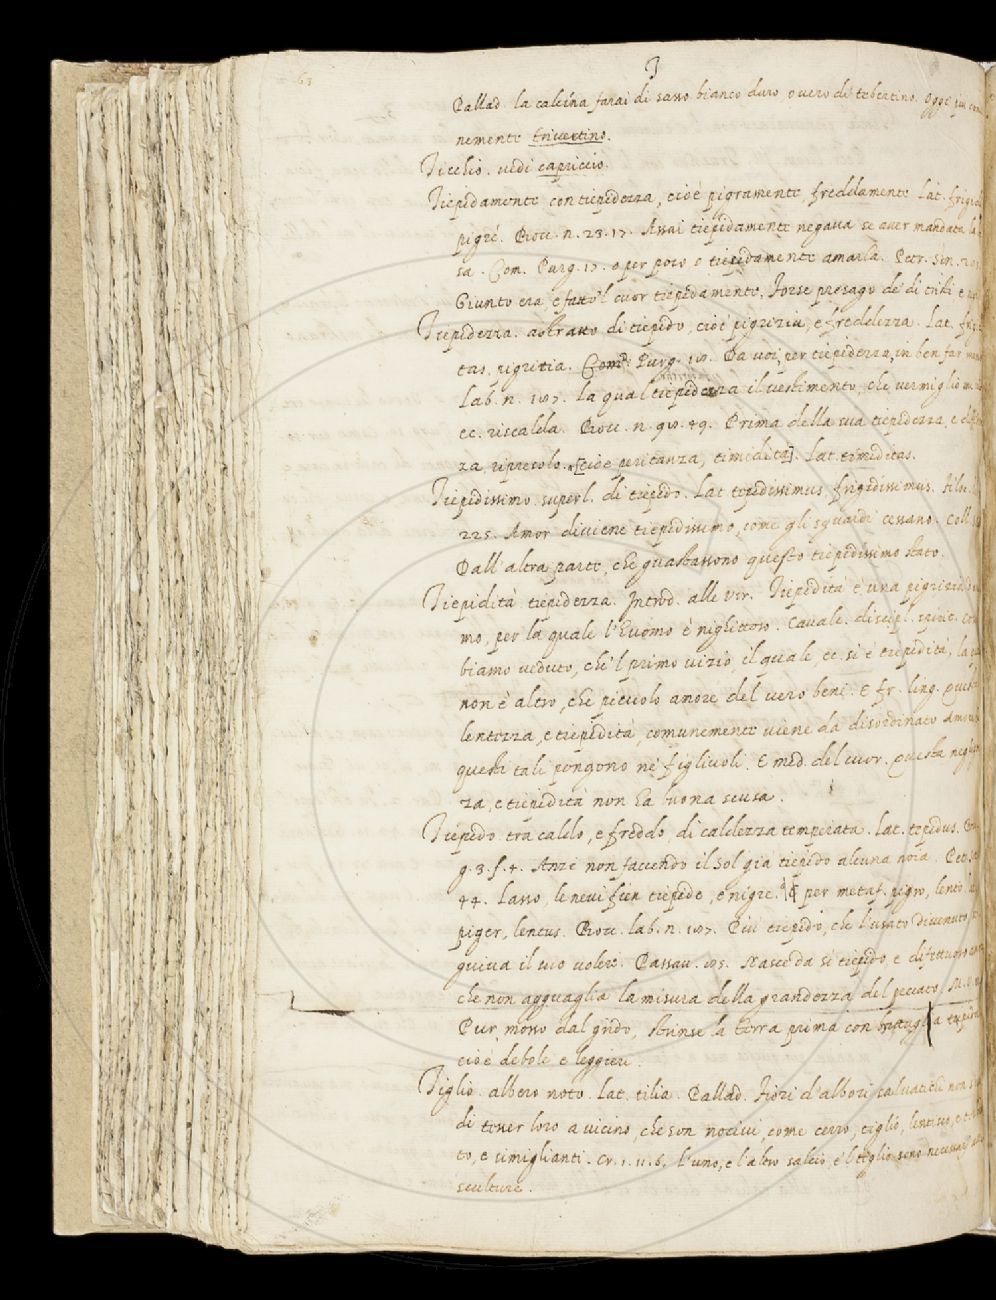 63
T
Pallad. la calcina farai di sasso bianco duro, o vero di tebertino. Oggi più com
nemente trivertino.
Ticchio. vedi capriccio.
Tiepidamente con tiepidezza, cioè pigramente, freddamente Lat. frigide
pigrè. Bocc. n. 23. 17. Assai tiepidamente negava se aver mandata la
sa. Com. Purg. 17. o per poco o tiepidamente amarla. Petr. Son.
Giunto era, e fatto 'l cuor tiepidamente, Forse presago de' dì tristi e
Tiepidezza. astratto di tiepido, cioè pigrizia, e freddezza. Lat. frigi
tas, pigritia. Com. Purg. Da voi per tiepidezza in ben far
Lab. n. la qual tiepidezza il vestimento, che vermiglio
ec. riscalda. Bocc. n. 49. Prima della sua tiepidezza, e
za, ripresolo. [cioè peritanza, timidità]. Lat. timiditas.
Tiepidissimo. superl. di tiepido. Lat. tepidissimus, frigidissimus. Filoc.
225. Amor diviene tiepidissimo, come gli sguardi cessano. Coll.
Dall'altra parte, che guastassono questo tiepidissimo stato.
Tiepidità tiepidezza. Introd. alle vir. Tiepidità è una pigrizia
mo, per la quale l'huomo è nighittoso. Cavalc. discipl. spirit.
biamo veduto, che 'l primo vizio, il quale ec. si è tiepidità, la
non è altro, che picciolo amore del vero bene. E fr. ling.
lentezza, e tiepidità, comunemente viene da disordinato amor
questi tali pongono ne' figliuoli. E med. del cuor. Questa neglig
za, e tiepidità non ha buona scusa.
Tiepido. tra caldo, e freddo, di caldezza temperata. Lat. tepidus.
g. 3. f. 4. Anzi non faccendo il Sol già tiepido alcuna noia. Petr.
44. Lasso, le nevi fien tiepide, e nigre. per metaf. pigro, lento.
piger, lentus. Bocc. lab. n. Più tiepido, che l'usato divenuto,
guiva il suo volere. Passav. Nasce da sì tiepido, e difettuoso
che non agguaglia la misura della grandezza del peccato. M. V.
Pur mosso dal grido, strinse la terra prima con battaglia tiepida
cioè debole e leggieri.
Tiglio. albero noto. Lat. tilia. Pallad. Fiori d'albori salvatichi non
di tener loro a vicino, che son nocivi, come cerro, tiglio, lentisco, e
to, e simiglianti. Cr. 1. 11. 6. L'uno, e l'altro salcio, e 'l tiglio sono necessarj
sculture.